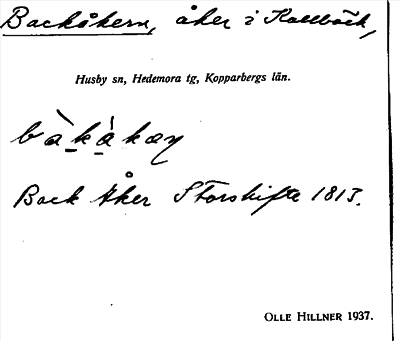 Backåkern, åker i Kallbäck,
Husby sn, Hedemora tg, Kopparbergs län.
bàkàkæŋ
Back Åker Storskifte 1813.
OLLE HILLNER 1937.